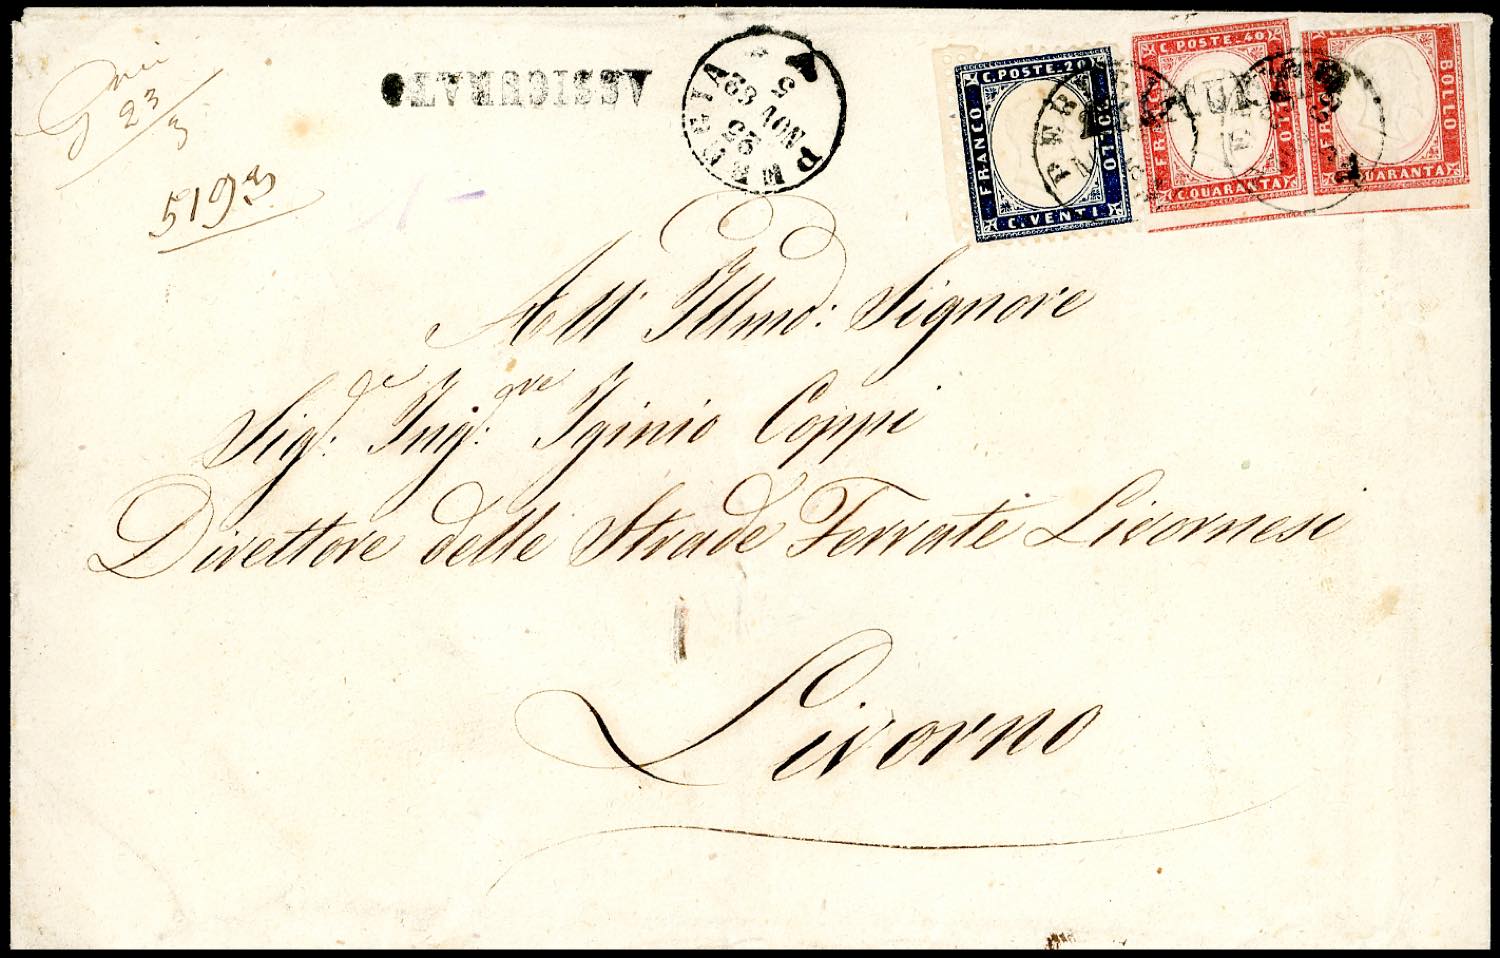 23/3
5193
ASSICURATO
PERUGIA
25
NOV
62
5
C. POSTE. 20
FRANCO
BOLLO
C. VENTI
C. POSTE. 40
FRANCO
BOLLO
C. QUARANTA
BOLLO
QUARANTA
All' Illmo: Signore
Sig:re Ing:gre Iginio Coppi
Direttore delle Strade Ferrate Livornesi
Livorno